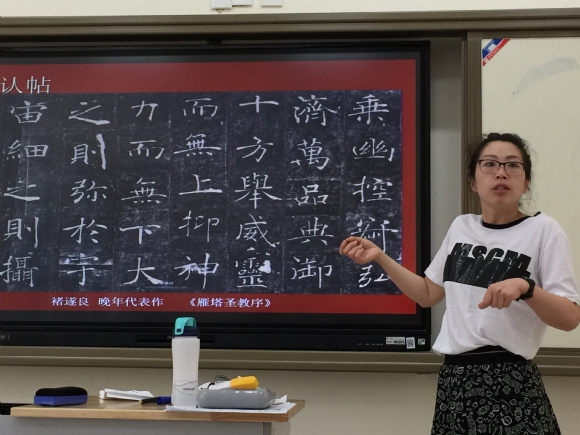 认帖
乘幽控寂弘
濟萬品典御
十方舉威靈
而無上抑神
力而無下大
之則弥於宇
宙細之則攝
褚遂良 晚年代表作 《雁塔圣教序》